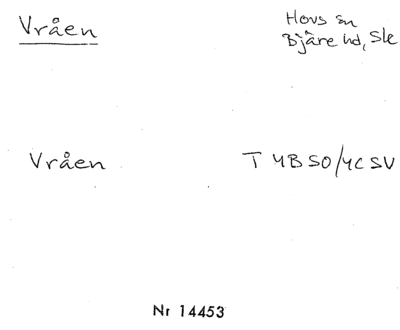 Vråen
Hovs sn
Bjäre hd, Skå
Vråen
T 4B SO/4C SV
Nr 14453